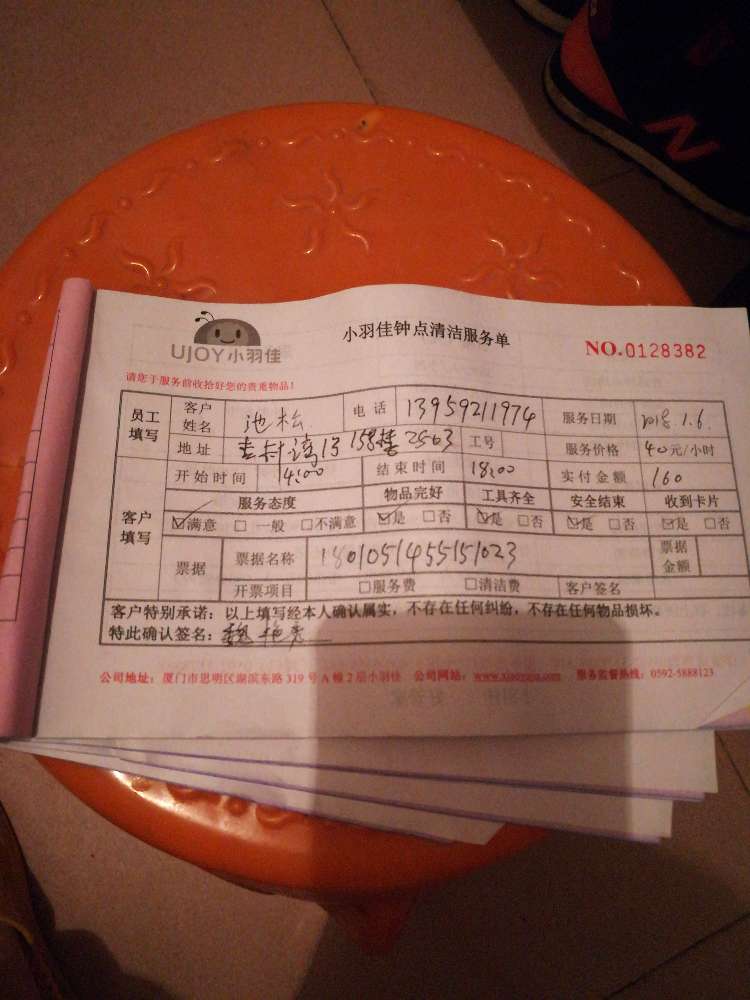 UJOY小羽佳
小羽佳钟点清洁服务单
NO.0128382
请您于服务前收拾好您的贵重物品!
员工填写 客户姓名 池松 电话 13959211974 服务日期 2018.1.6.
地址 158楼2503 工号 服务价格 40元/小时
客户填写 开始时间 14:00 结束时间 18:00 实付金额 160
服务态度 物品完好 工具齐全 安全结束 收到卡片
☑满意 □一般 □不满意 ☑是 □否 ☑是 □否 ☑是 □否 ☑是 □否
票据 票据名称 1801051455151023 票据金额
开票项目 □服务费 □清洁费 客户签名
客户特别承诺:以上填写经本人确认属实,不存在任何纠纷,不存在任何物品损坏。
特此确认签名:魏
公司地址:厦门市思明区湖滨东路319号A幢2层小羽佳 公司网站: 服务监督热线:0592-5888123
N